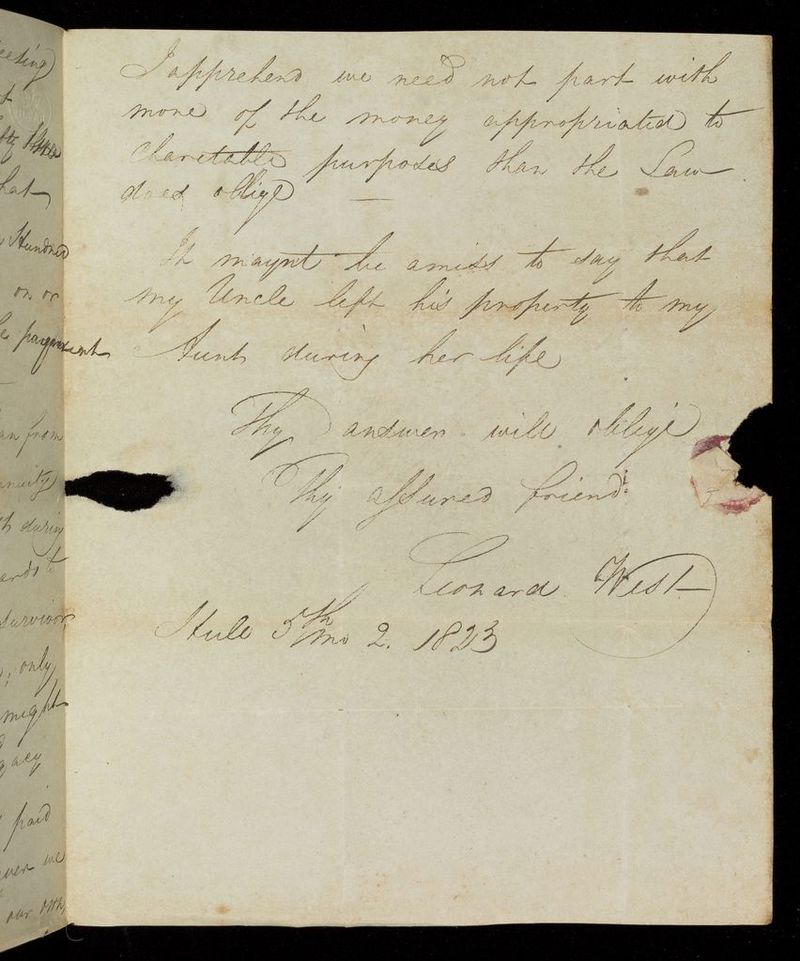 eeting
hat
Hundred
on or
payment
an from
nuity
th during
ards to
Survivor
; only
might
gacy
paid
ever we
our own
I apprehend we need not part with
more of the money appropriated to
charetable purposes than the Law
does oblige —
It maynt be amiss to say that
my Uncle left his property to my
Aunt during her life
Thy answer will oblige
Thy assured friend
Leonard West
Hull 5th mo 2. 1823